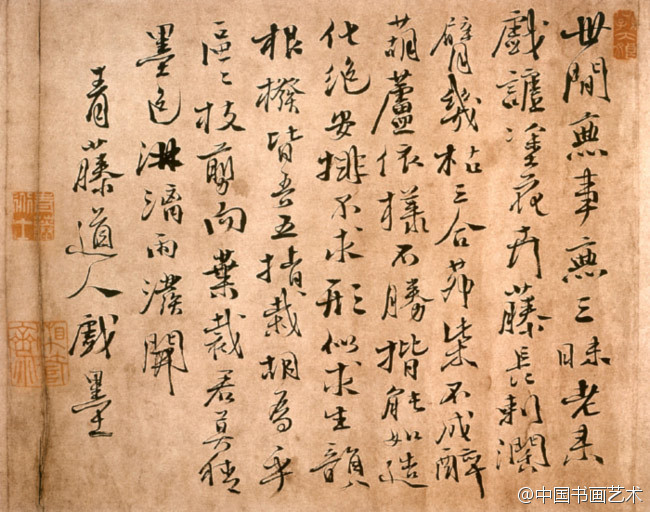 世間無事無三昧老來
戲謔塗花卉藤長刺濶
臂幾枯三合茅柴不成醉
葫蘆依樣不勝揩能如造
化絕安排不求形似求生韻
根撥皆吾五指栽胡為乎
區々枝剪而葉裁君莫猜
墨色淋漓雨潑開
青藤道人戲墨
@中国书画艺术